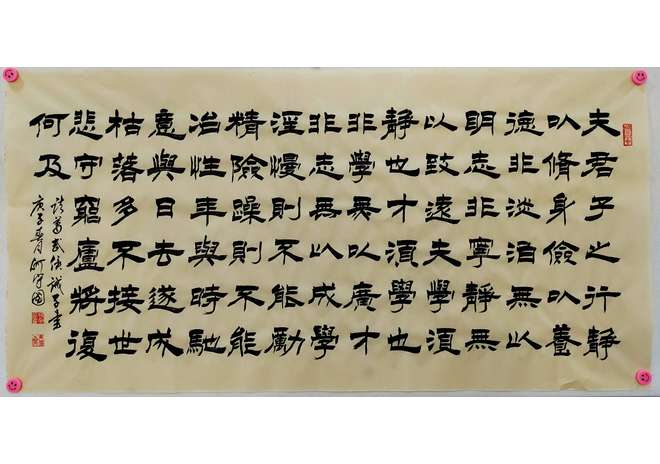 夫君子之行靜
以脩身儉以養
德非淡泊無以
明志非寧靜無
以致遠夫學須
靜也才須學也
非學無以廣才
非志無以成學
淫慢則不能勵
精險躁則不能
冶性年與時馳
意與日去遂成
枯落多不接世
悲守窮廬將復
何及
諸葛武侯誡子書
庚子